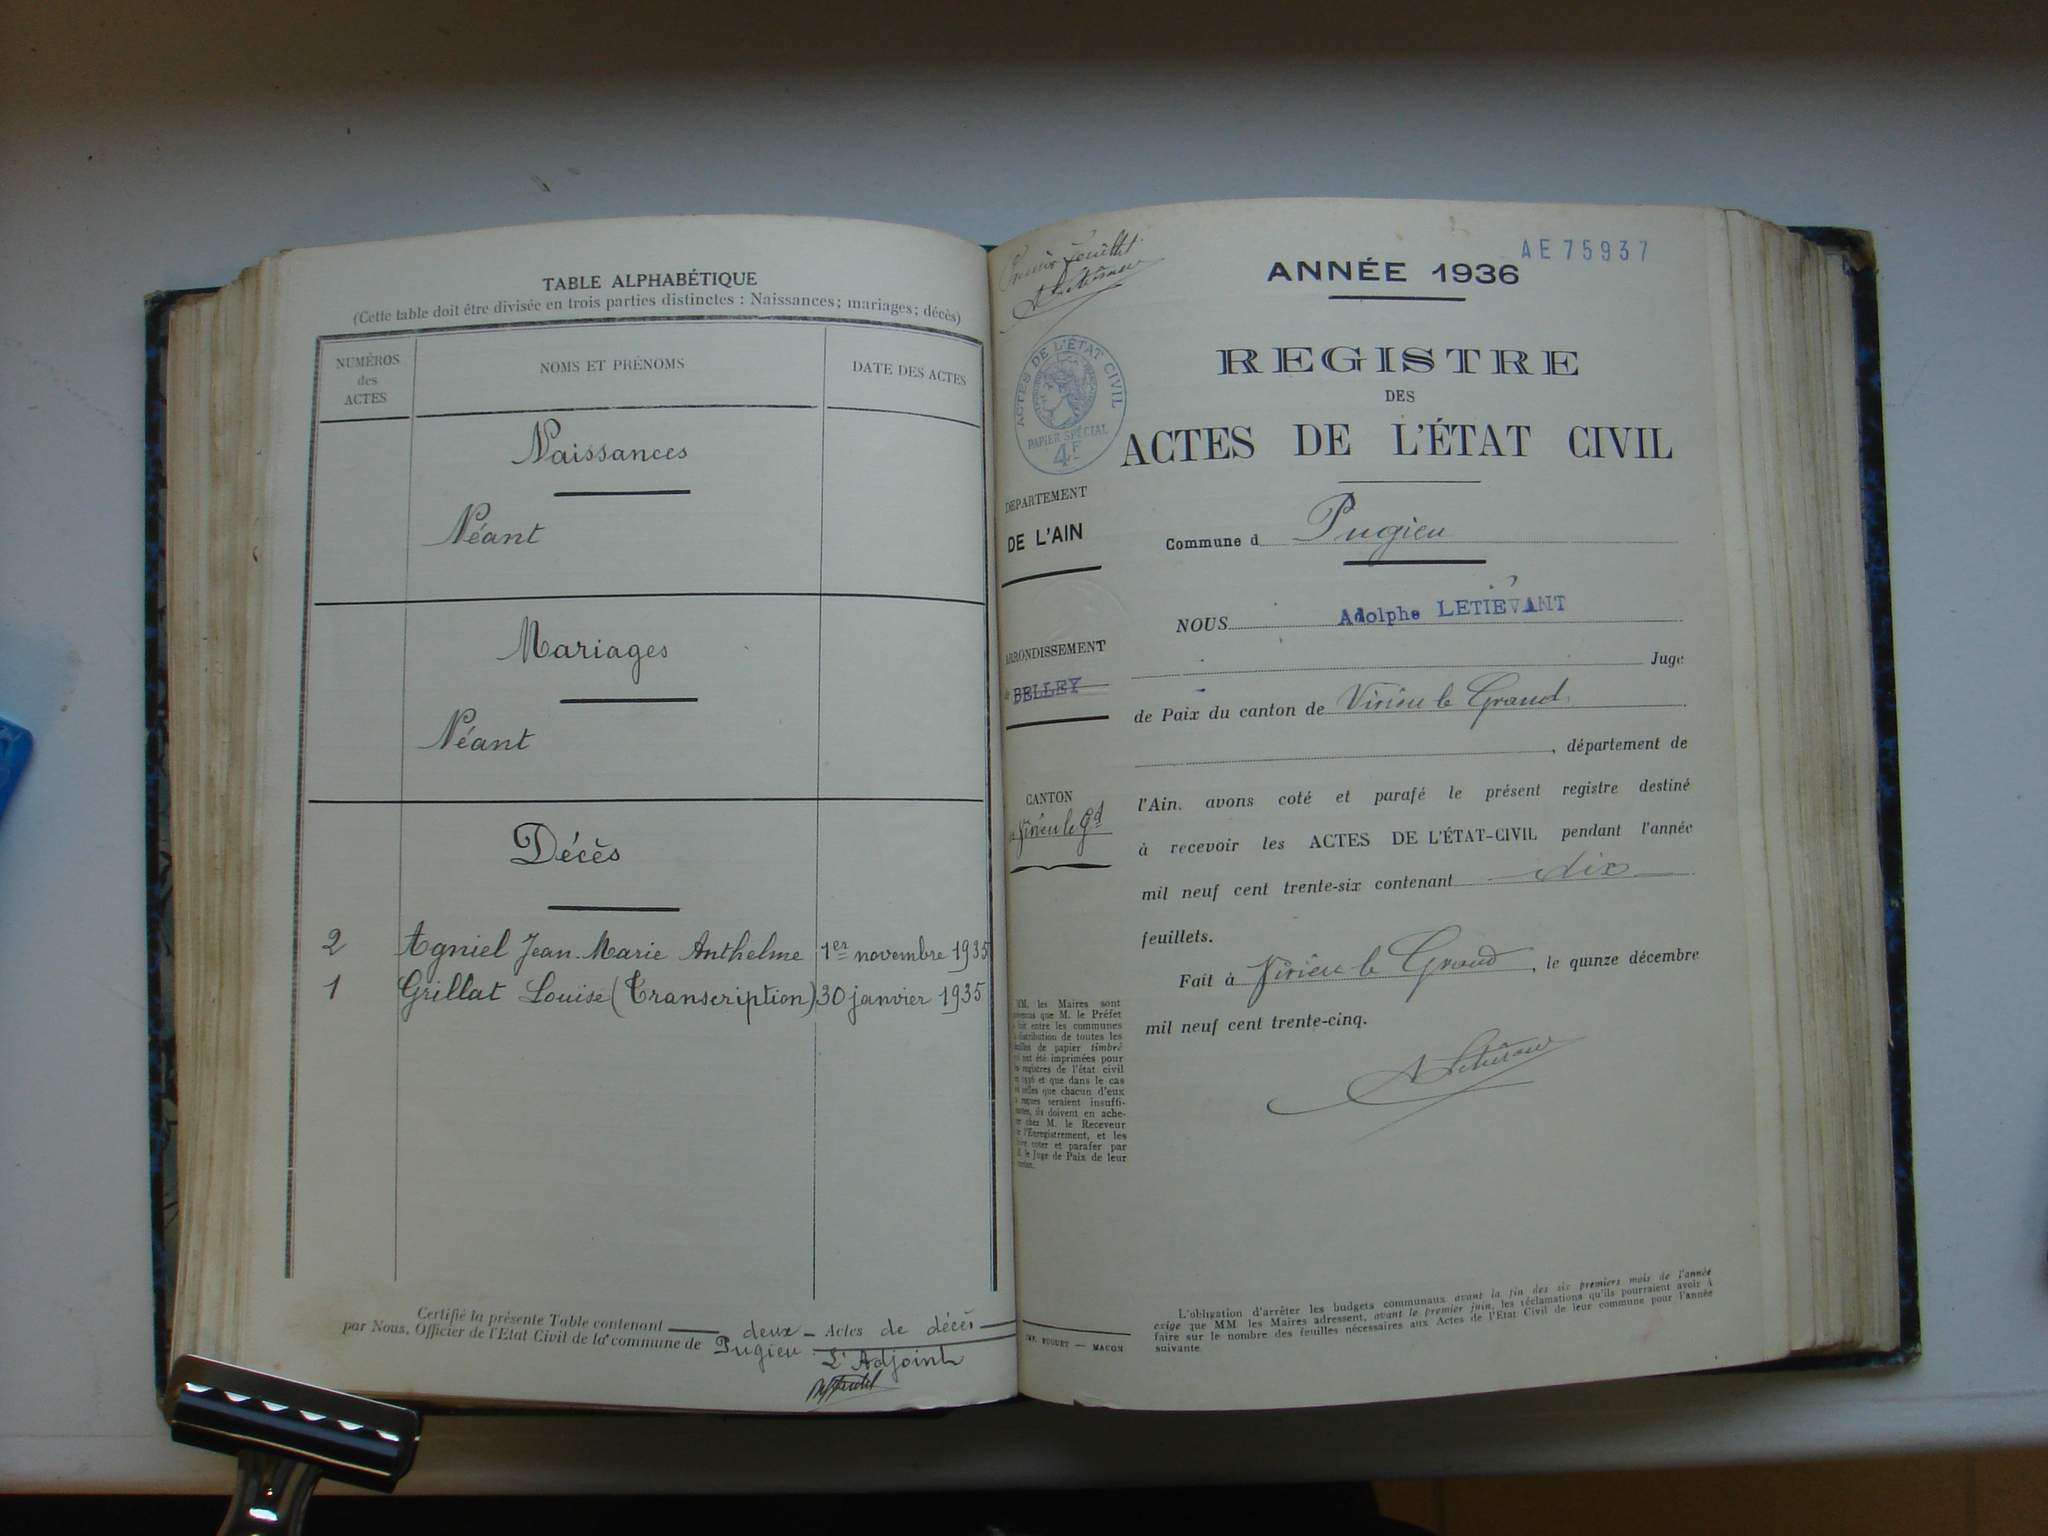 TABLE ALPHABÉTIQUE
(Cette table doit être divisée en trois parties distinctes : Naissances; mariages; décès)
NUMÉROS des ACTES
NOMS ET PRÉNOMS
DATE DES ACTES
Naissances
Néant
Mariages
Néant
Décès
2 Agniel Jean-Marie Anthelme 1er novembre 1935
1 Grillat Louise (Transcription) 30 janvier 1935
Certifié la présente Table contenant deux Actes de décès
par Nous, Officier de l'Etat Civil de la commune de Pugieu
L'Adjoint
feuillet
AE75937
ANNÉE 1936
REGISTRE
DES
ACTES DE L'ÉTAT CIVIL
ACTES DE L'ÉTAT CIVIL
PAPIER SPÉCIAL
4F
DÉPARTEMENT
DE L'AIN
Commune d Pugieu
NOUS Adolphe LETIEVANT
ARRONDISSEMENT
de BELLEY
Juge
de Paix du canton de Virieu le Grand
, département de
CANTON
Virieu le Gd
l'Ain, avons coté et parafé le présent registre destiné
à recevoir les ACTES DE L'ÉTAT-CIVIL pendant l'année
mil neuf cent trente-six contenant dix
feuillets.
Fait à Virieu le Grand, le quinze décembre
mil neuf cent trente-cinq.
MM. les Maires sont
que M. le Préfet
fait entre les communes
distribution de toutes les
de papier timbré
ont été imprimées pour
registres de l'état civil
1936 et que dans le cas
celles que chacun d'eux
reçues seraient insuffi-
santes, ils doivent en ache-
chez M. le Receveur
de l'Enregistrement, et les
coter et parafer par
le Juge de Paix de leur
canton.
IMP. BUGUET — MACON
L'obligation d'arrêter les budgets communaux avant la fin des six premiers mois de l'année
exige que MM les Maires adressent, avant le premier juin, les réclamations qu'ils pourraient avoir à
faire sur le nombre des feuilles nécessaires aux Actes de l'Etat Civil de leur commune pour l'année
suivante.